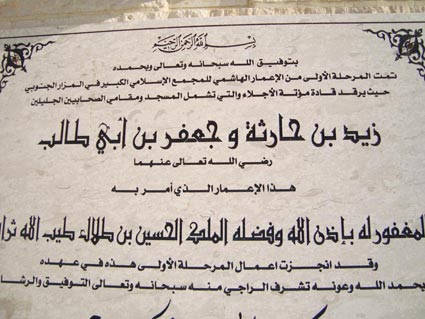 بسم الله الرحمن الرحيم
بتوفيق الله سبحانه وتعالى وبحمده
تمت المرحلة الأولى من الإعمار الهاشمي للمجمع الإسلامي الكبير في المزار الجنوبي
حيث يرقد قادة مؤتة الأجلاء والتي تشمل المسجد ومقامي الصحابيين الجليلين
زيد بن حارثة و جعفر بن أبي طالب
رضي الله تعالى عنهما
هذا الإعمار الذي أمر به
المغفور له بإذن الله وفضله الملك الحسين بن طلال طيب الله ثراه
وقد انجزت اعمال المرحلة الأولى هذه في عهده
بحمد الله وعونه تشرف الراجي منه سبحانه وتعالى التوفيق والرشا